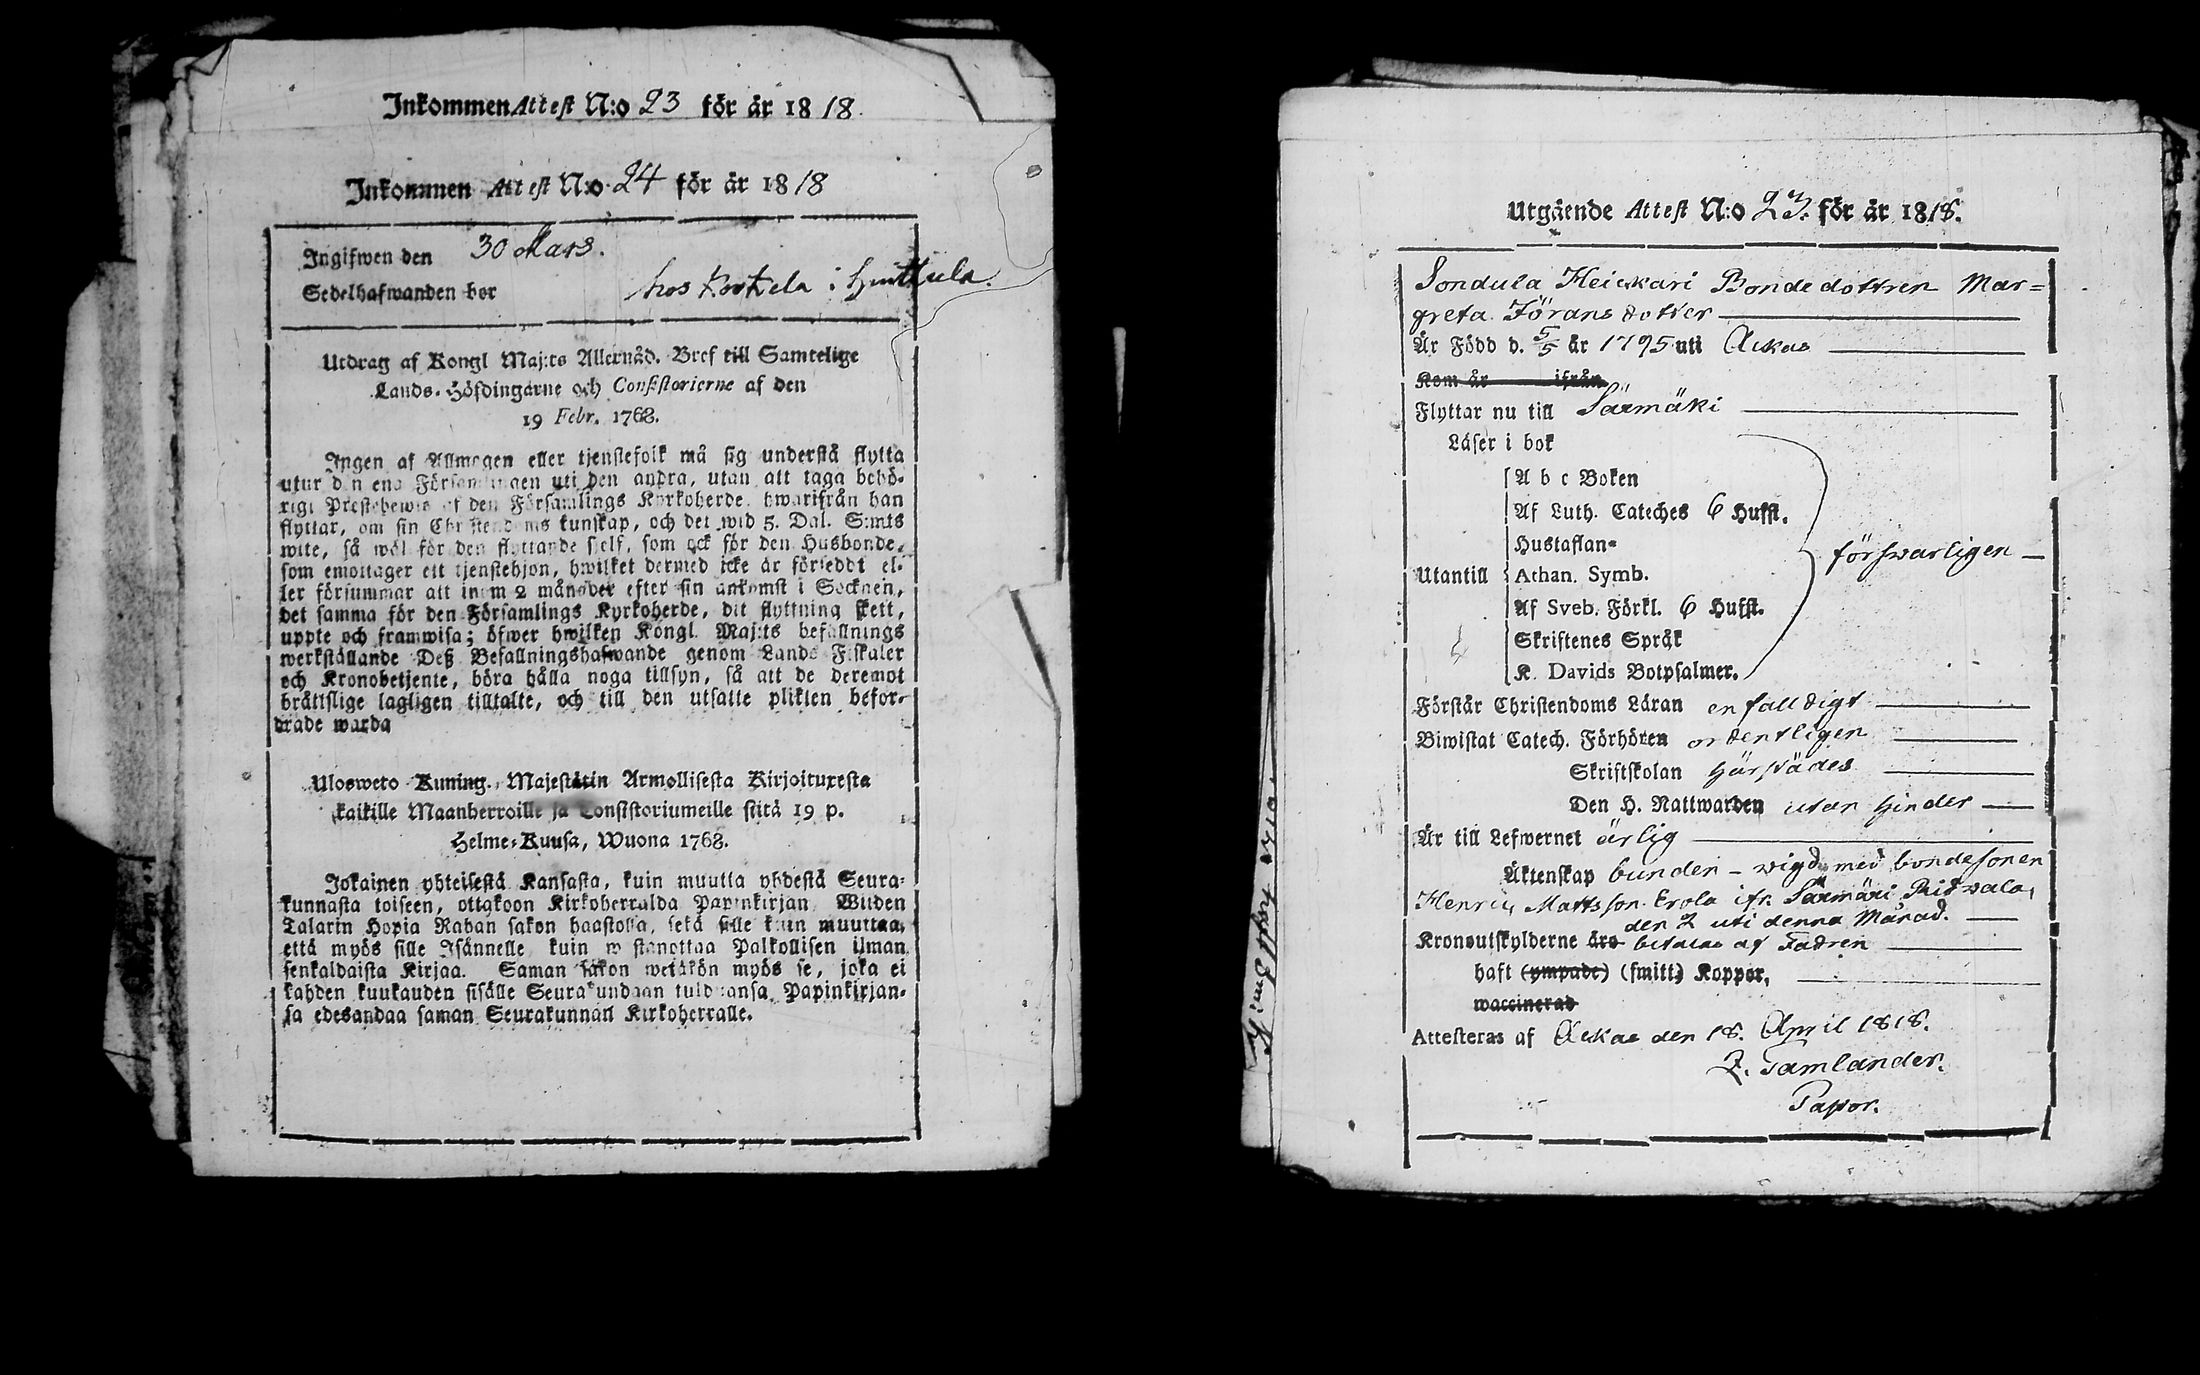 Inkommen Attest N:o 23 för år 1818.
Inkommen Attest N:o 24 för år 1818
Ingifwen den 30 Mars.
Sedelhafwanden bor hos i
Utdrag af Kongl Maj:ts Allernåd. Bref till Samtelige
Lands-Höfdingarne och Consistorierne af den
19 Febr. 1768.
Ingen af Allmogen eller tjenstefolk må sig understå flytta
utur den ena Församlingen uti den andra, utan att taga behö-
rigt Prestebewis af den Församlings Kyrkoherde, hwarifrån han
flyttar, om sin Christendoms kunskap, och det wid 5. Dal. S:mts
wite, så wäl för den flyttande sjelf, som ock för den Husbonde,
som emottager ett tjenstehjon, hwilket dermed icke är förseddt el-
ler försummar att inom 2 månader efter sin ankomst i Socknen,
det samma för den Församlings Kyrkoherde, dit flyttning skett,
uppte och framwisa; öfwer hwilken Kongl. Maj:ts befallnings
werkställande Deß Befallningshafwande genom Lands Fiskaler
och Kronobetjente, böra hålla noga tillsyn, så att de deremot
bråttslige lagligen tilltalte, och till den utsatte plikten befor-
drade warda
Ulosweto Kuning. Majestätin Armollisesta Kirjoituxesta
kaikille Maanherroille ja Consistoriumeille siitä 19 p.
Helme-Kuusa, Wuona 1768.
Jokainen yhteisestä Kansasta, kuin muutta yhdestä Seura-
kunnasta toiseen, ottakoon Kirkoherralda Papinkirjan, Wiiden
Talarin Hopia Rahan sakon haastolla, sekä sille kuin muuttaa,
että myös sille Isännelle, kuin wastanottaa Palkollisen ilman
senkaldaista Kirjaa. Saman sakon wetäkön myös se, joka ei
kahden kuukauden sisälle Seurakundaan tulduansa, Papinkirjan-
sa edesandaa saman Seurakunnan Kirkoherralle.
Utgående Attest N:o 23. för år 1818.
Sondula Heickari Bondedottren Mar=
greta Göransdotter
Är Född d. 5/5 år 1795 uti Ackas
Kom år ifrån
Flyttar nu till Säxmäki
Läser i bok
A b c Boken
Af Luth. Cateches 6 Hufst.
Hustaflan=
Utantill Athan. Symb. förswarligen
Af Sveb. Förkl. 6 Hufst.
Skriftenes Språk
K. Davids Botpsalmer.
Förstår Christendoms Läran enfalldigt
Biwistat Catech. Förhören ordentligen
Skriftskolan härstädes
Den H. Nattwarden utan hinder
Är till Lefwernet ärlig
Äktenskap bunden - wigd med bondesonen
Henric Mattsson Erola ifr. Säxmäki Ritwala,
den 2 uti denna Månad.
Kronoutskylderne äro betalas af Fadren
haft (ympade) (smitt) Koppor,
waccinerad
Attesteras af Ackas den 18. April 1818.
Z. Tamlander.
Pastor.